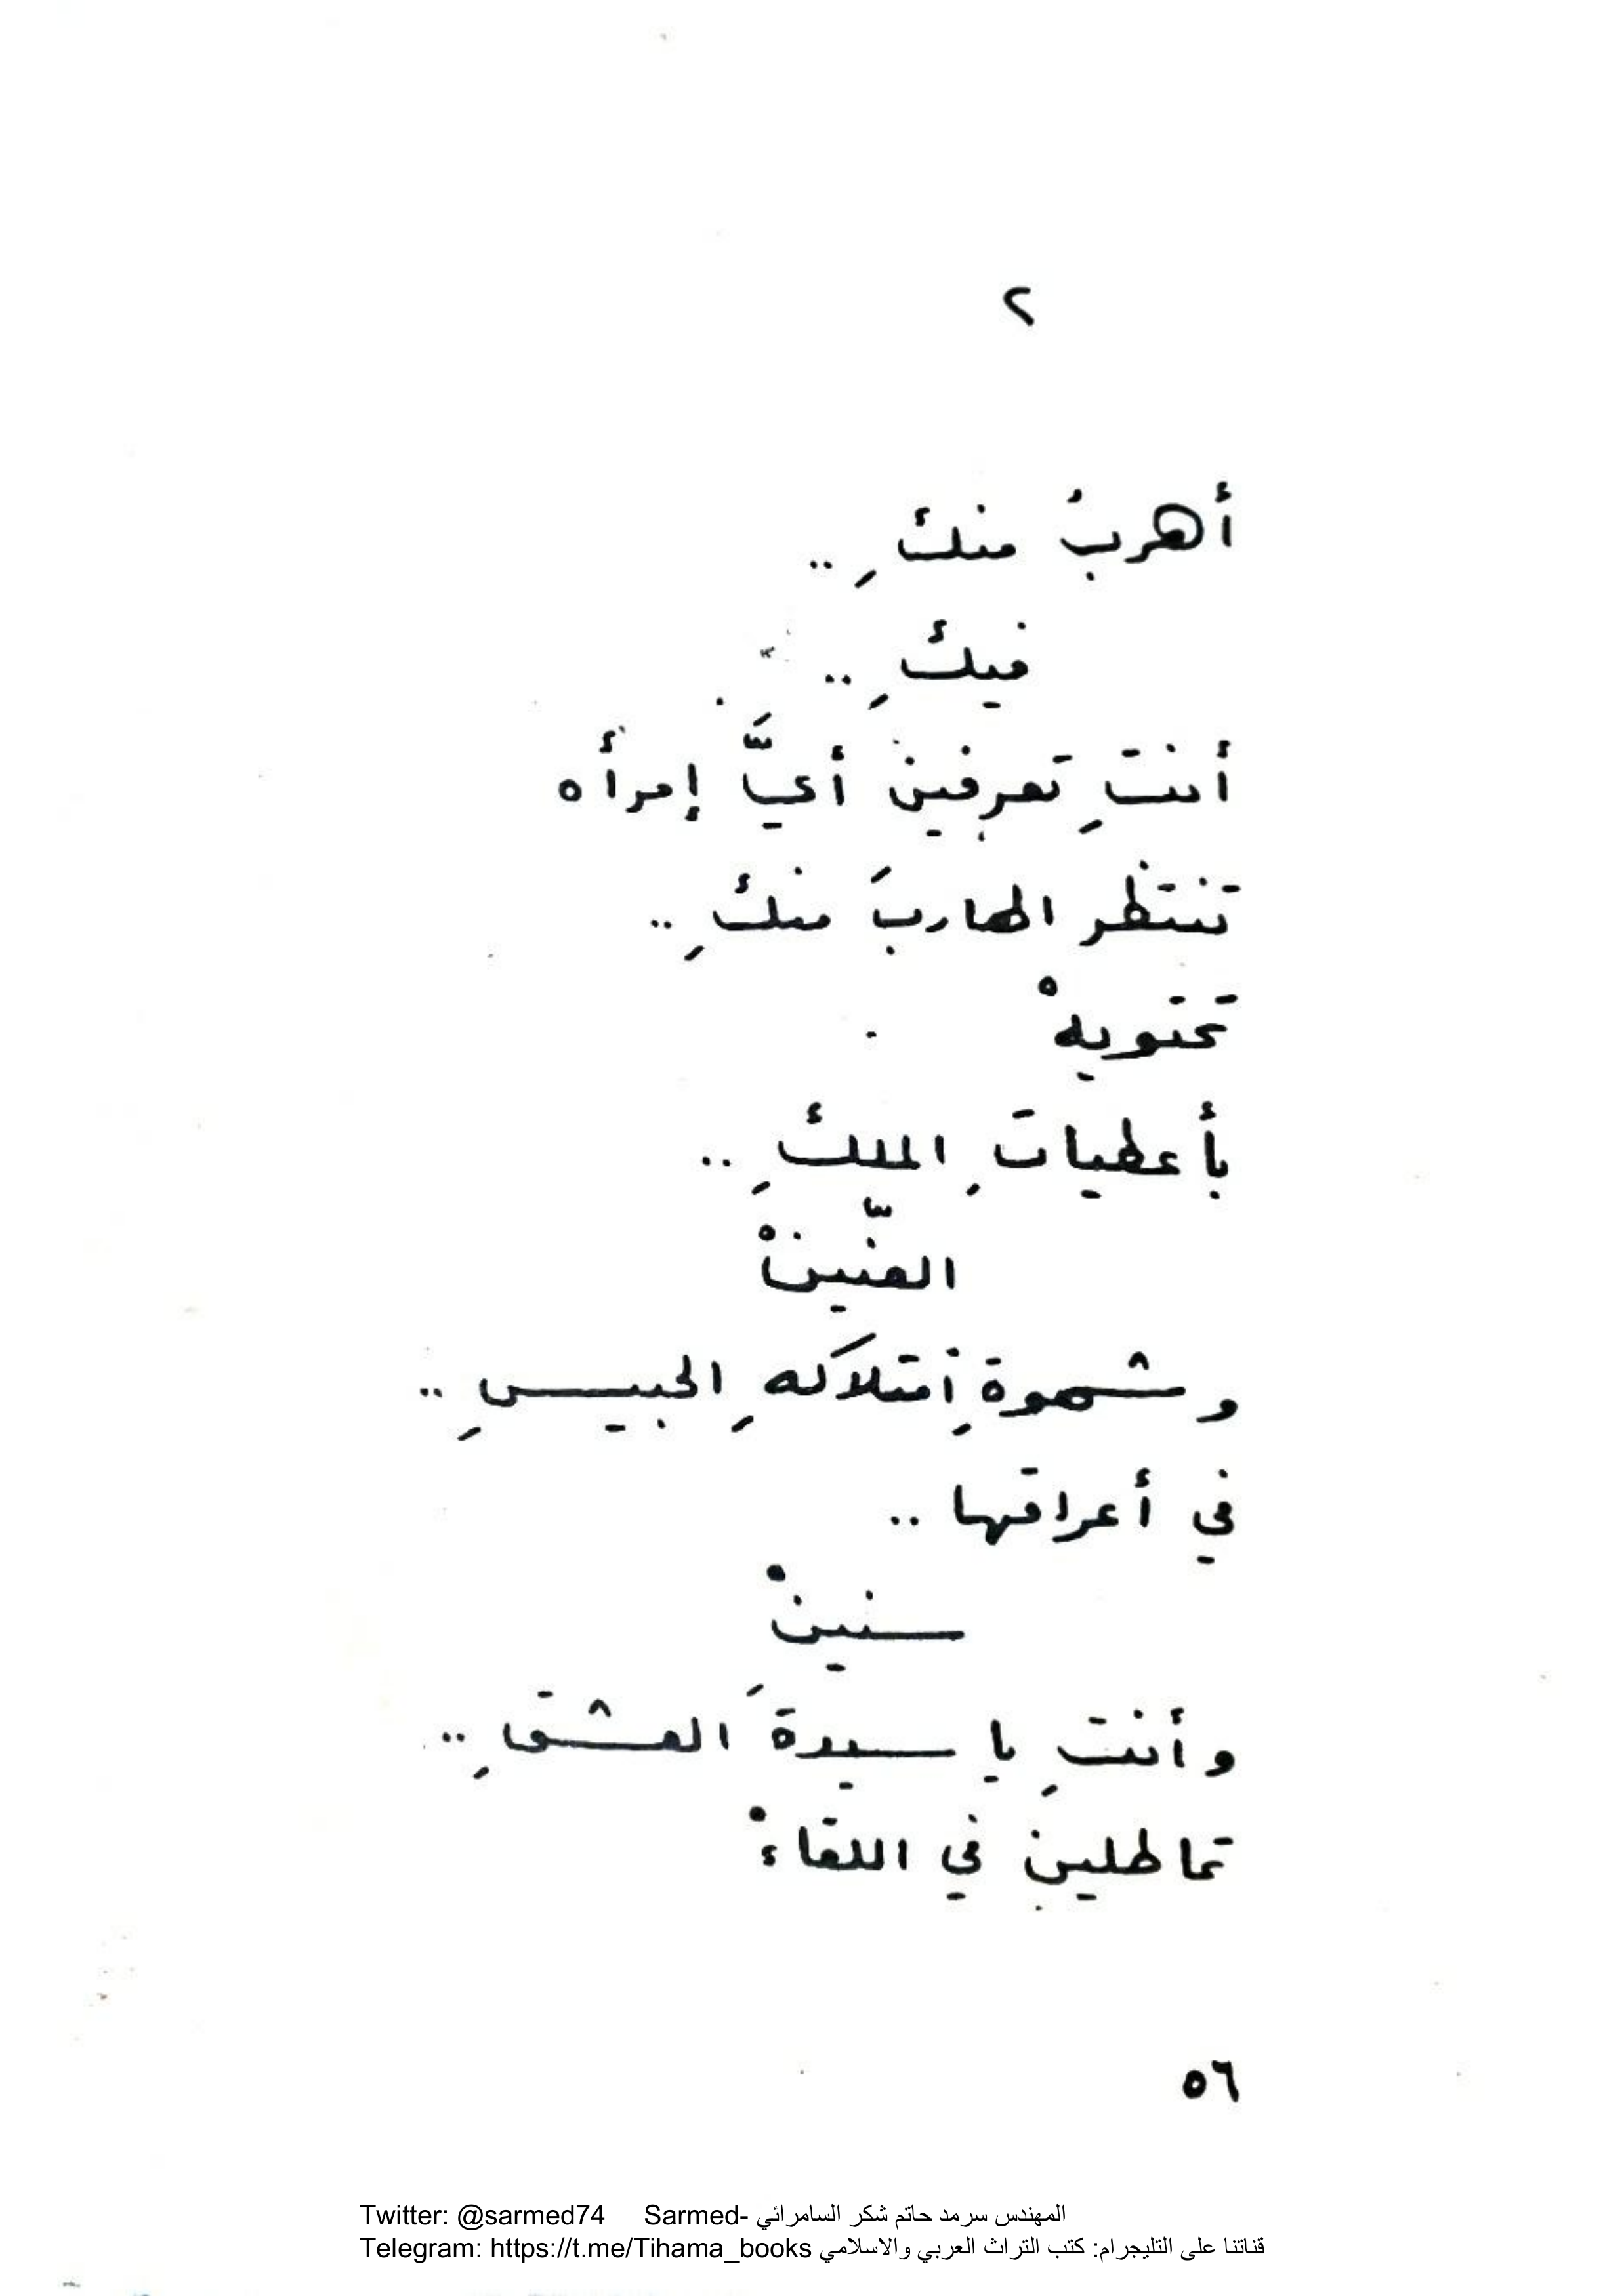 ٢
أهربُ منكِ ..
فيكِ ..
أنتِ تعرفين أيَّ إمرأه
تنتظر الهاربَ منكِ ..
تحتويهْ
بأعطياتِ الملكِ ..
العنّينْ
وشهوةِ امتلاكهِ الحبيسِ ..
في أعراقها ..
سنينْ
وأنتِ يا سيدةَ العشقِ ..
تماطلين في اللقاءْ
٥٦
Twitter: @sarmed74 Sarmed- المهندس سرمد حاتم شكر السامرائي
Telegram: https://t.me/Tihama_books قناتنا على التليجرام: كتب التراث العربي والاسلامي